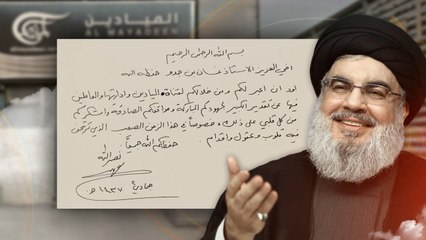 الميادين
AL MAYADEEN
بسم الله الرحمن الرحيم
اخي العزيز الاستاذ غسان بن جدو حفظه الله
اود ان اعبر لكم ومن خلالكم لقناة الميادين وادارتها والعاملين
فيها عن تقديري الكبير لجهودكم المباركة ومواقفكم الصادقة واشكركم
من كل قلبي على ذلك، خصوصا في هذا الزمن الصعب الذي تزلزلت
فيه قلوب وعقول واقدام.
حفظكم الله جميعا
نصرالله
١٤٣٧ هـ